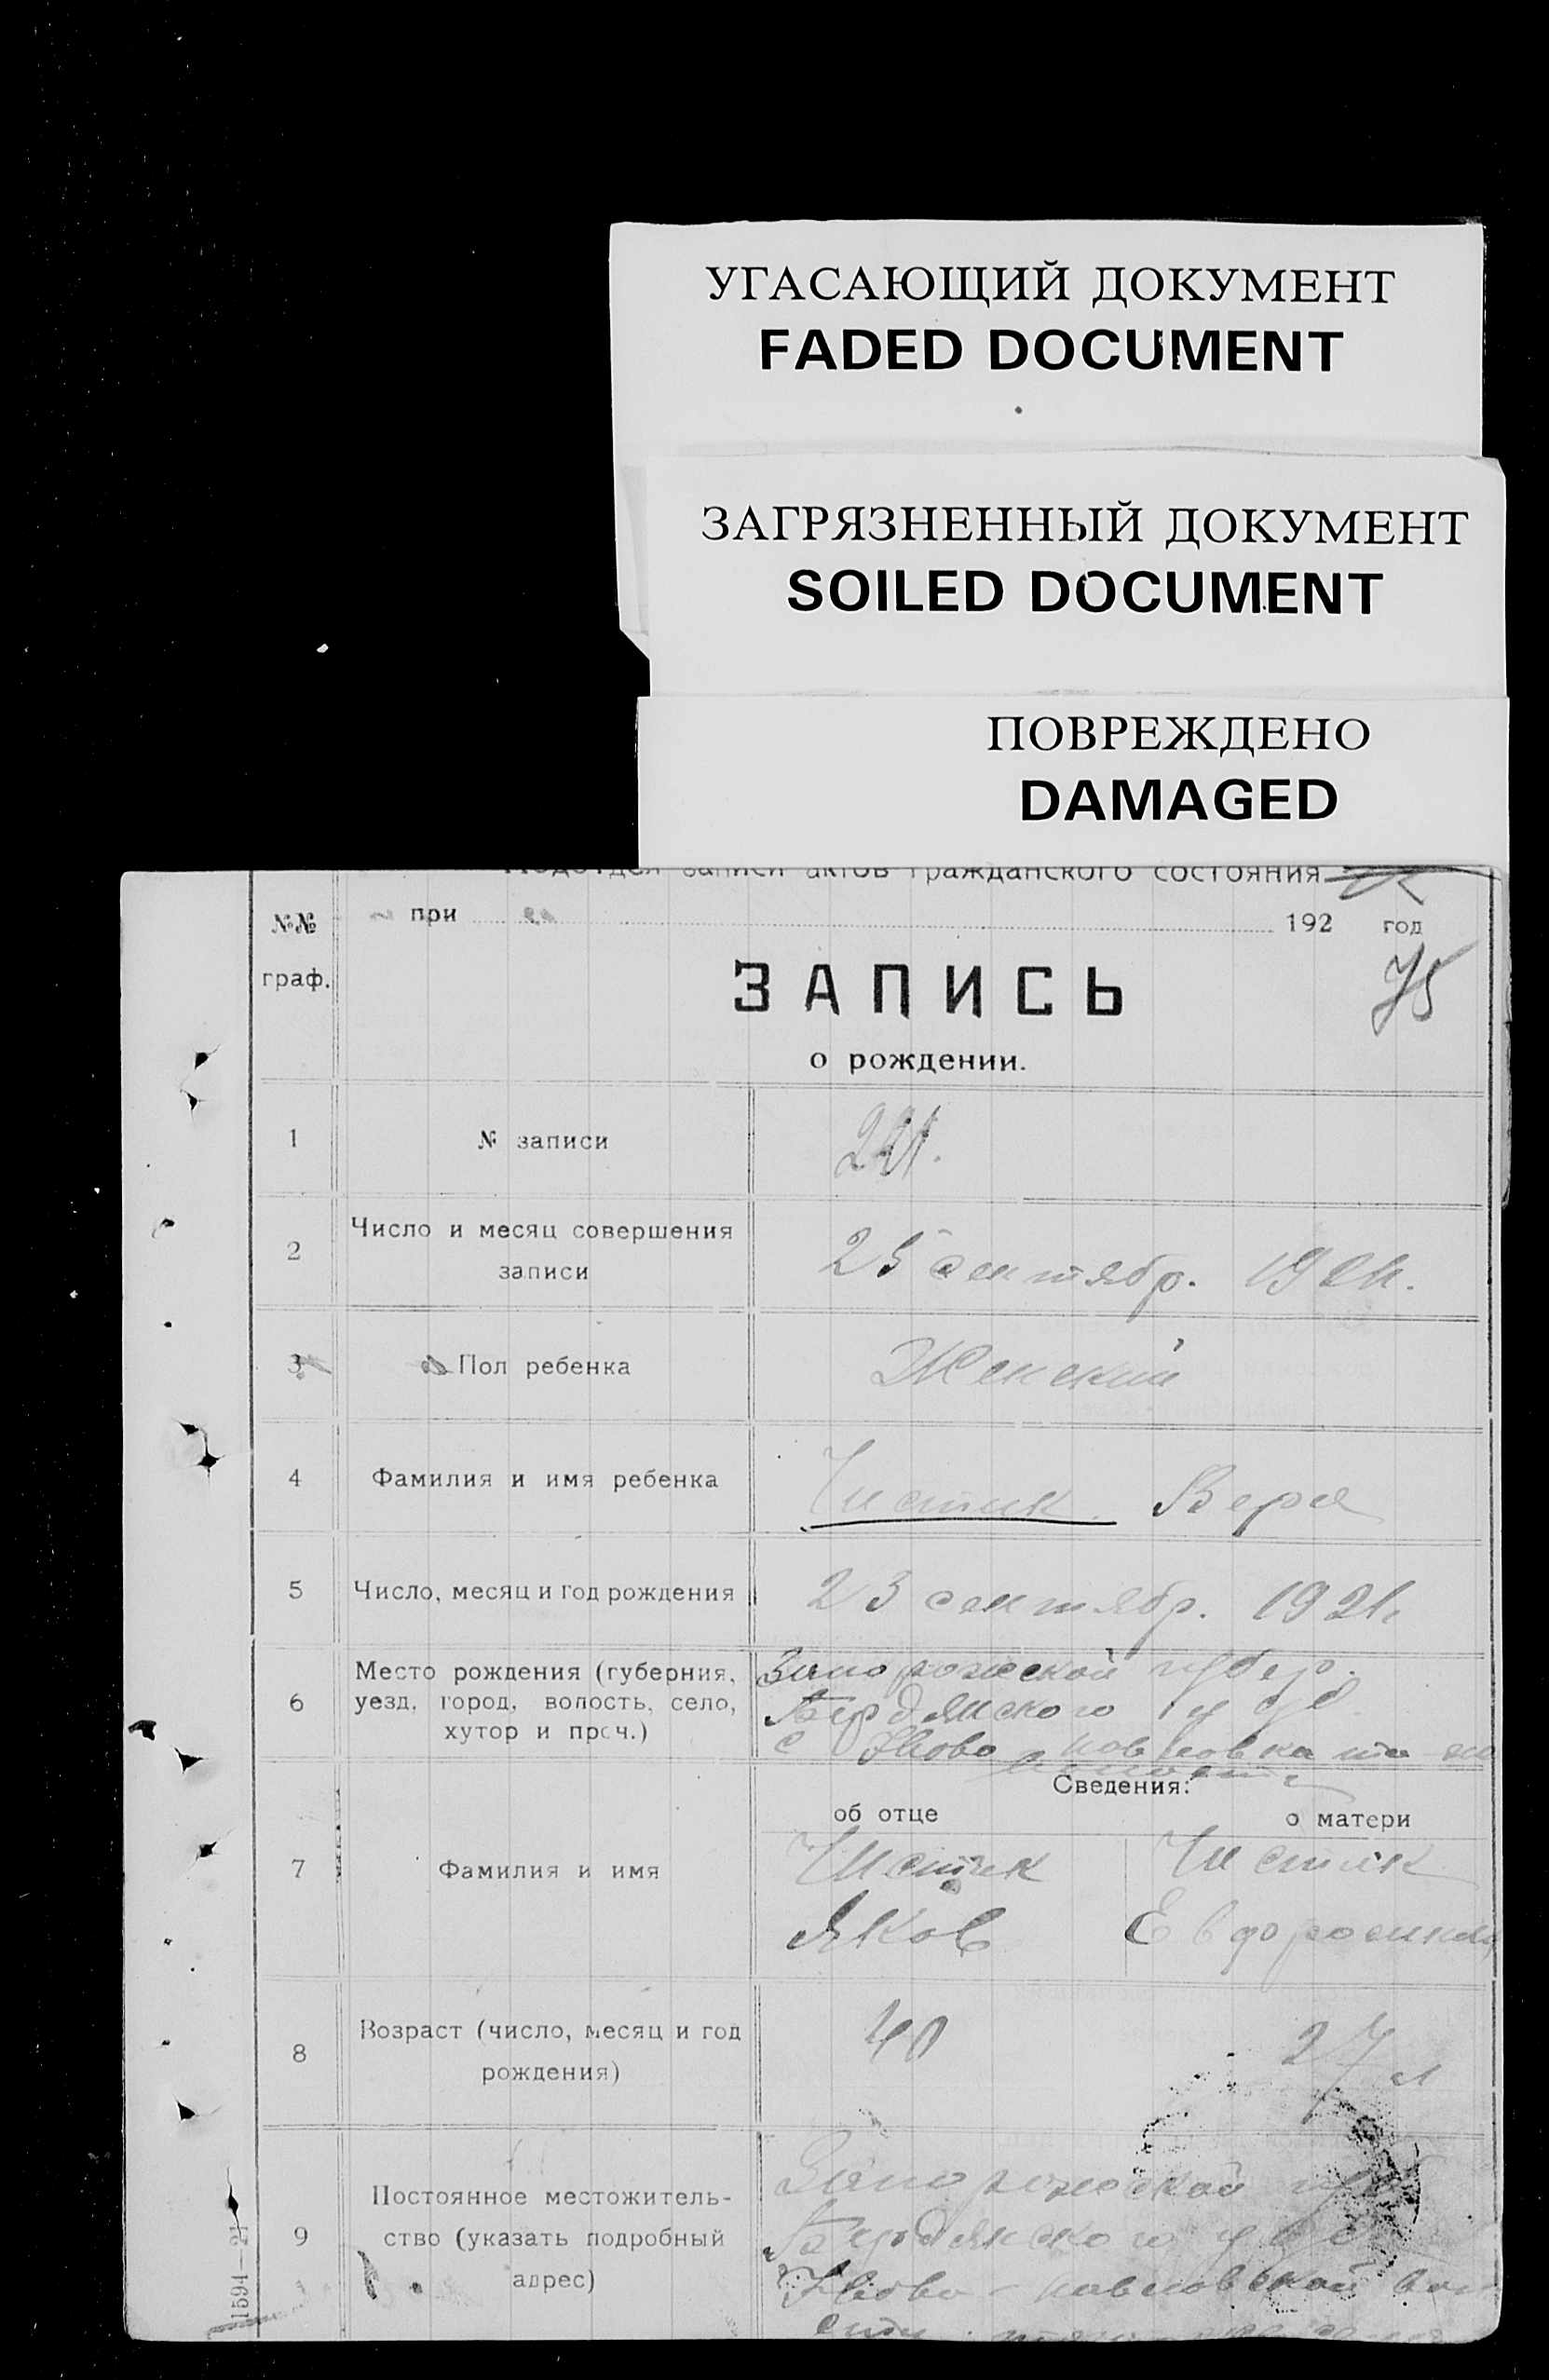 УГАСАЮЩИЙ ДОКУМЕНТ
FADED DOCUMENT
ЗАГРЯЗНЕННЫЙ ДОКУМЕНТ
SOILED DOCUMENT
ПОВРЕЖДЕНО
DAMAGED
Подотдел записи актов гражданского состояния
№№ граф.
при 192 год
75
ЗАПИСЬ
о рождении.
1 № записи
221.
2 Число и месяц совершения
записи
25 сентябр. 1921.
3 Пол ребенка
Женский
4 Фамилия и имя ребенка
Чистик Вера
5 Число, месяц и год рождения
23 сентябр. 1921.
6 Место рождения (губерния,
уезд, город, волость, село,
хутор и проч.)
Запорожской губер.
Бердянского уезд
с Ново павловка
Сведения:
об отце
о матери
7 Фамилия и имя
Чистик
Яков
Чистик
8 Возраст (число, месяц и год
рождения)
40
27 л
9 Постоянное местожитель-
ство (указать подробный
адрес)
Запорожской губ
Бердянского уезд
Ново-павловской
1594—21